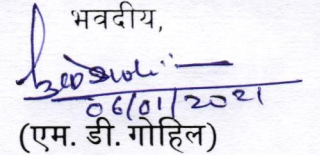 भवदीय,
06/01/2021
(एम. डी. गोहिल)